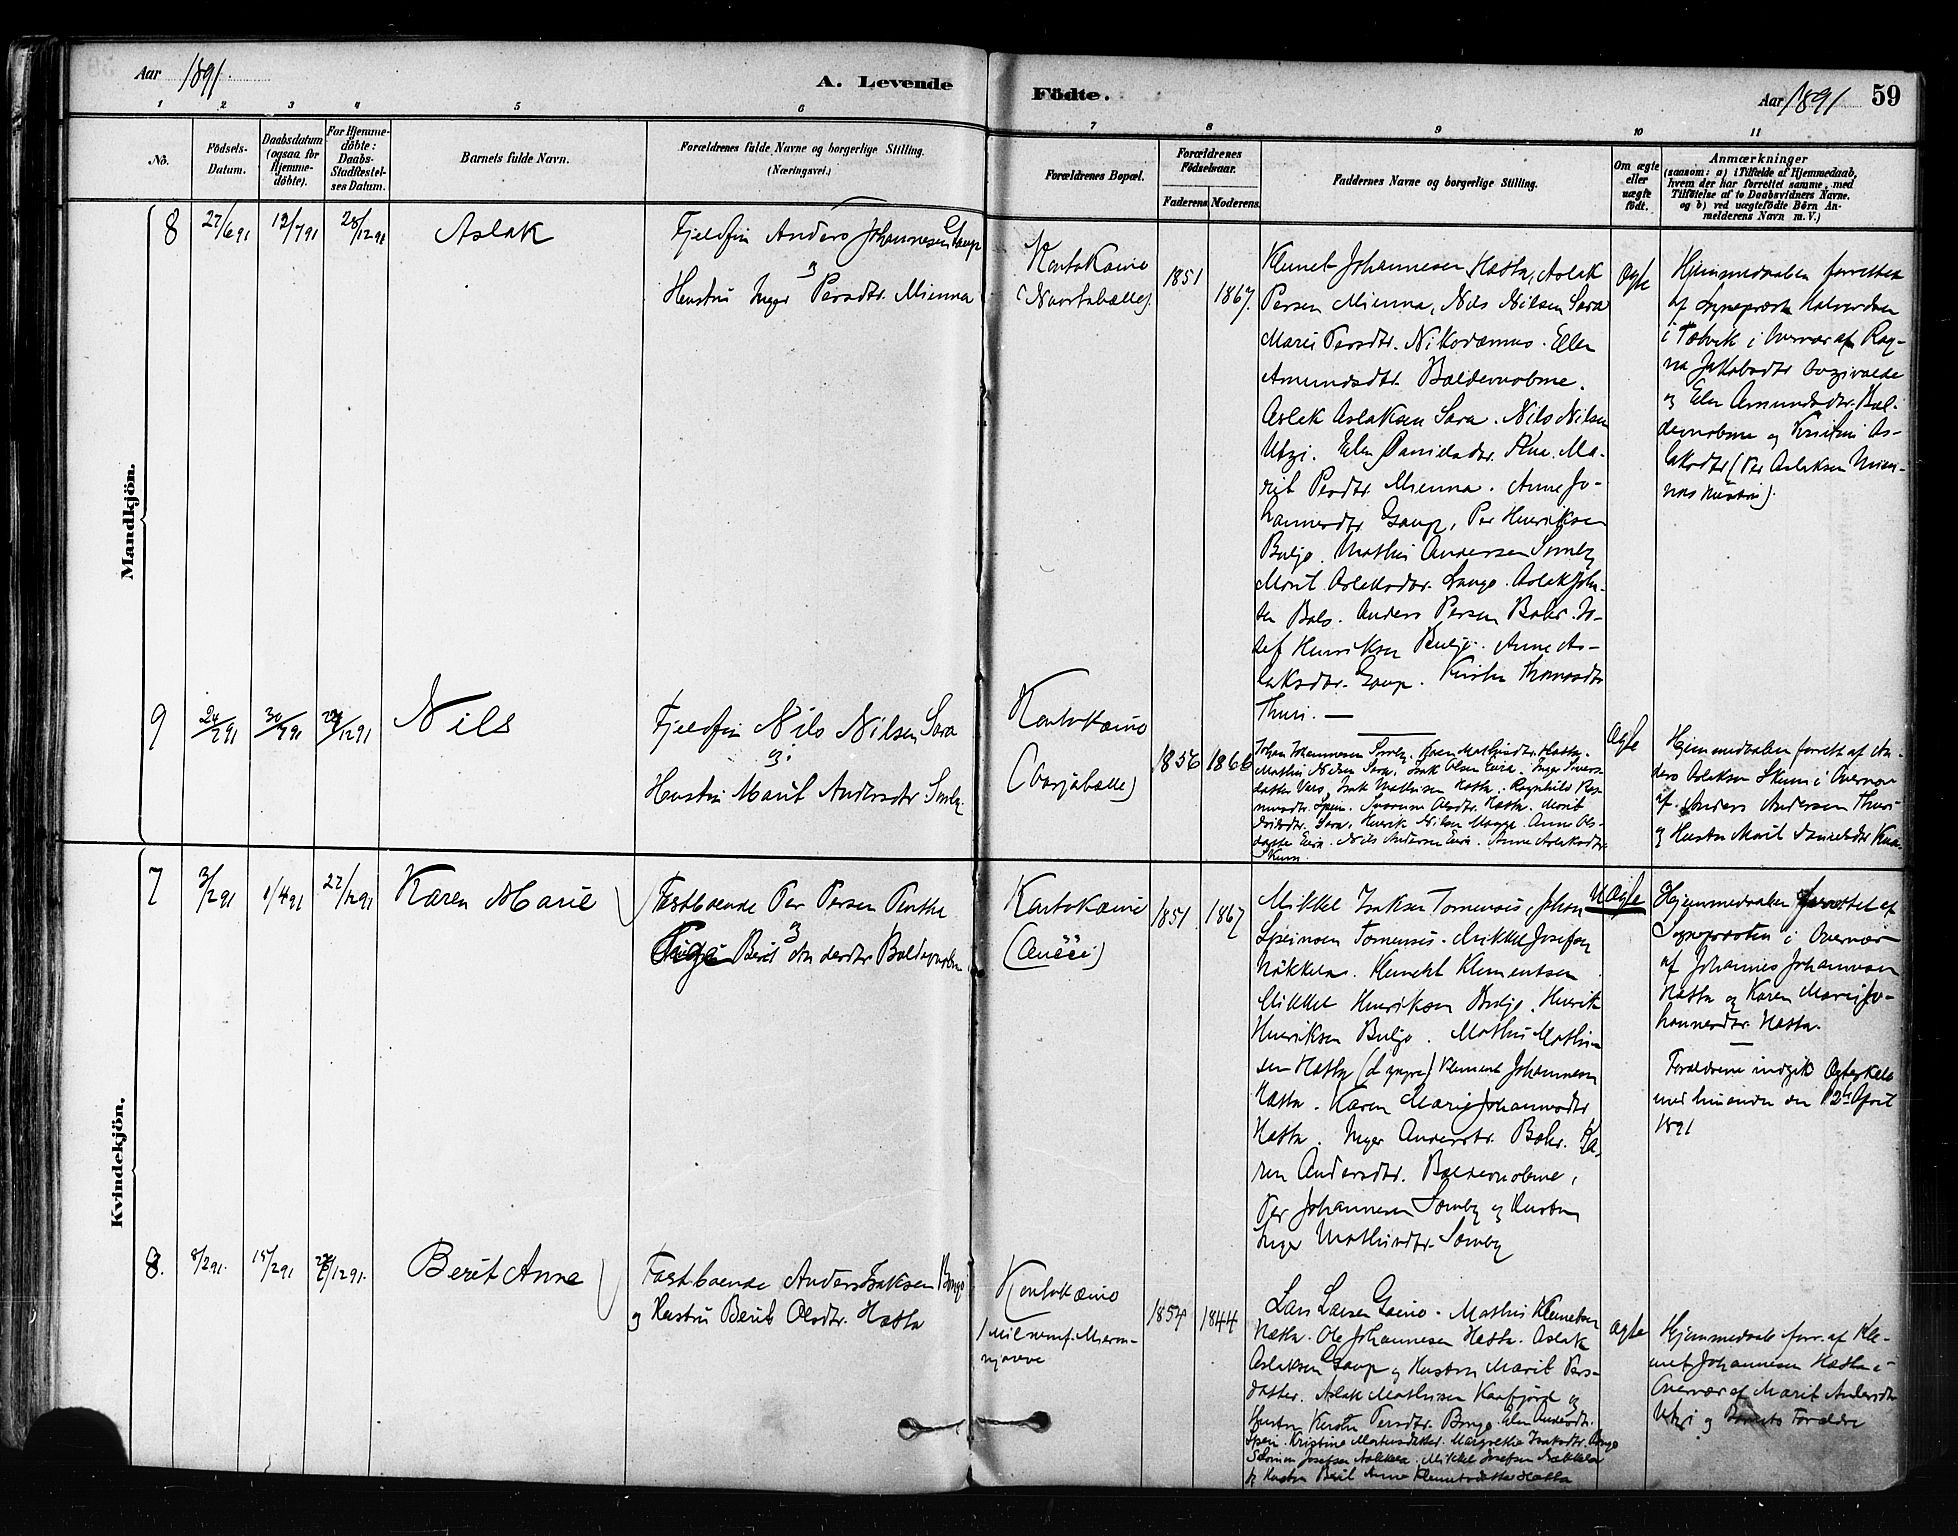 Aar 1891.
A. Levende
Födte.
Aar 1891
59
1 2 3 4 5 6 7 8 9 10 11
No.
Födsels-
Datum.
Daabsdatum
(ogsaa for
Hjemme-
döbte).
For Hjemme-
döbte:
Daabs-
Stadfæstel-
ses Datum.
Barnets fulde Navn.
Forældrenes fulde Navne og borgerlige Stilling.
(Næringsvei.)
Forældrenes Bopæl.
Forældrenes
Födselsaar.
Faderens Moderens.
Faddernes Navne og borgerlige Stilling.
Om ægte
eller
uægte
födt.
Anmærkninger
(saasom: a) i Tilfælde af Hjemmedaab,
hvem der har forrettet samme, med
Tilföielse af to Daabsvidners Navne.
og b) ved uægtefödte Börn An-
melderens Navn m. V.)
Mandkjön.
8
27/6 91
12/7 91
28/12 91
Aslak
Fjeldfin Anders Johannesen Gaup
og
Hustru Inger Persdtr. Mienna
Koutokæino
1851
1867.
Klemet Johannesen Hætta, Aslak
Persen Mienna, Nils Nilsen Sara
Marit Persdtr. Nikodemus. Ellen
Amundsdtr. Baldevuobme.
Aslak Aslaksen Sara. Nils Nilsen
Utzi. Elen Danielsdtr. Ma-
rit Persdtr. Mienna. Anne Jo-
hannesdtr Gaup, Per Henriksen
Buljo. Mathis Andersen Somby
Marit Aslaksdtr. Aslak Joh-
sen Bals. Anders Persen Bæhr. Jo-
sef Henriksen Buljo. Anne As-
laksdtr. Gaup. Kirsten Thomasdtr
Thuri. —
Ægte
Hjemmedaaben forrettet
af Sognepræst Halvorsen
i Overvær af Rag-
na Jakobsdtr
og Elen Amundsdtr. Bal-
devuobme og Kristine As-
laksdtr (Per Aslaksen Mien-
nas Hustru).
9
24/7 91
30/7 91
28/12 91
Nils
Fjeldfin Nils Nilsen Sara
og
Hustru Marit Andersdtr Somby.
Koutokæino
1856
1866
Johan Johannesen Somby. Mathisdtr. Hætta.
Mathis Nilsen Sara. Isak Olsen Eira. Inger Sivers-
datter Vars, Isak Mathisen Hætta. Ragnhild Ras-
musdtr. Spein. Olsdtr. Hætta. Marit
Nilsdtr. Sara. Henrik Nilsen Magga. Anne Ols-
datter Eira. Nils Andersen Eira. Anne Aslaksdtr.
Skum.
Ægte
Hjemmedaaben forrett. af An-
ders Aslaksen Skum i Overvær
af Anders Andersen Thuri
og Hustru Marit
Kvindekjön.
7
3/2 91
1/4 91
27/12 91
Karen Marie
Fastboende Per Persen Penthe
og
Pige Berit Andersdtr Baldevuobme
Koutokæino
1851
1867
Mikkel Isaksen Tornensis, Johan
Speinsen Tornensis. Mikkel Josefsen
Näkkela. Klemet Klementsen
Mikkel Henriksen Buljo. Henrik
Henriksen Buljo. Mathis Mathi-
sen Hætta (d yngre) Klemet Johannesen
Hætta. Karen Marie Johannesdtr
Hætta. Inger Andersdtr. Bæhr. Ka-
ren Andersdtr. Baldevuobme,
Per Johannesen Somby og Hustru
Inger Mathisdtr. Somby
Uægte
Hjemmedaaben forrettet af
Sognepræsten i Overvær
af Johannes Johannesen
Hætta og Karen Marie Jo-
hannesdtr. Hætta.
—
Forældrene indgik Ægteskab
med hinanden den 12te April
1891
8.
8/2 91.
15/2 91
28/12 91.
Berit Anne
Fastboende Anders Isaksen Bongo
og Hustru Berit Olsdtr. Hætta
Koutokæino
1854
1844
Lars Larsen Gaino. Mathis Klemetsen
Hætta. Ole Johannesen Hætta. Aslak
Aslaksen Gaup og Hustru Marit Pers-
datter. Aslak Mathisen Kaafjord og
Hustru Kirsten Persdtr. Bongo. Elen Andersdtr.
Spein. Kristine Mortensdatter. Margrethe Isaksdtr. Bongo
Salomon Josefsen Näkkela. Mikkel Josefsen Näkkela
og Hustru Berit Anne Klemetsdatter Hætta
Ægte
Hjemmedaab forr. af Kle-
met Johannesen Hætta i
Overvær af Marit Andersdtr
Utzi og Barnets Forældre